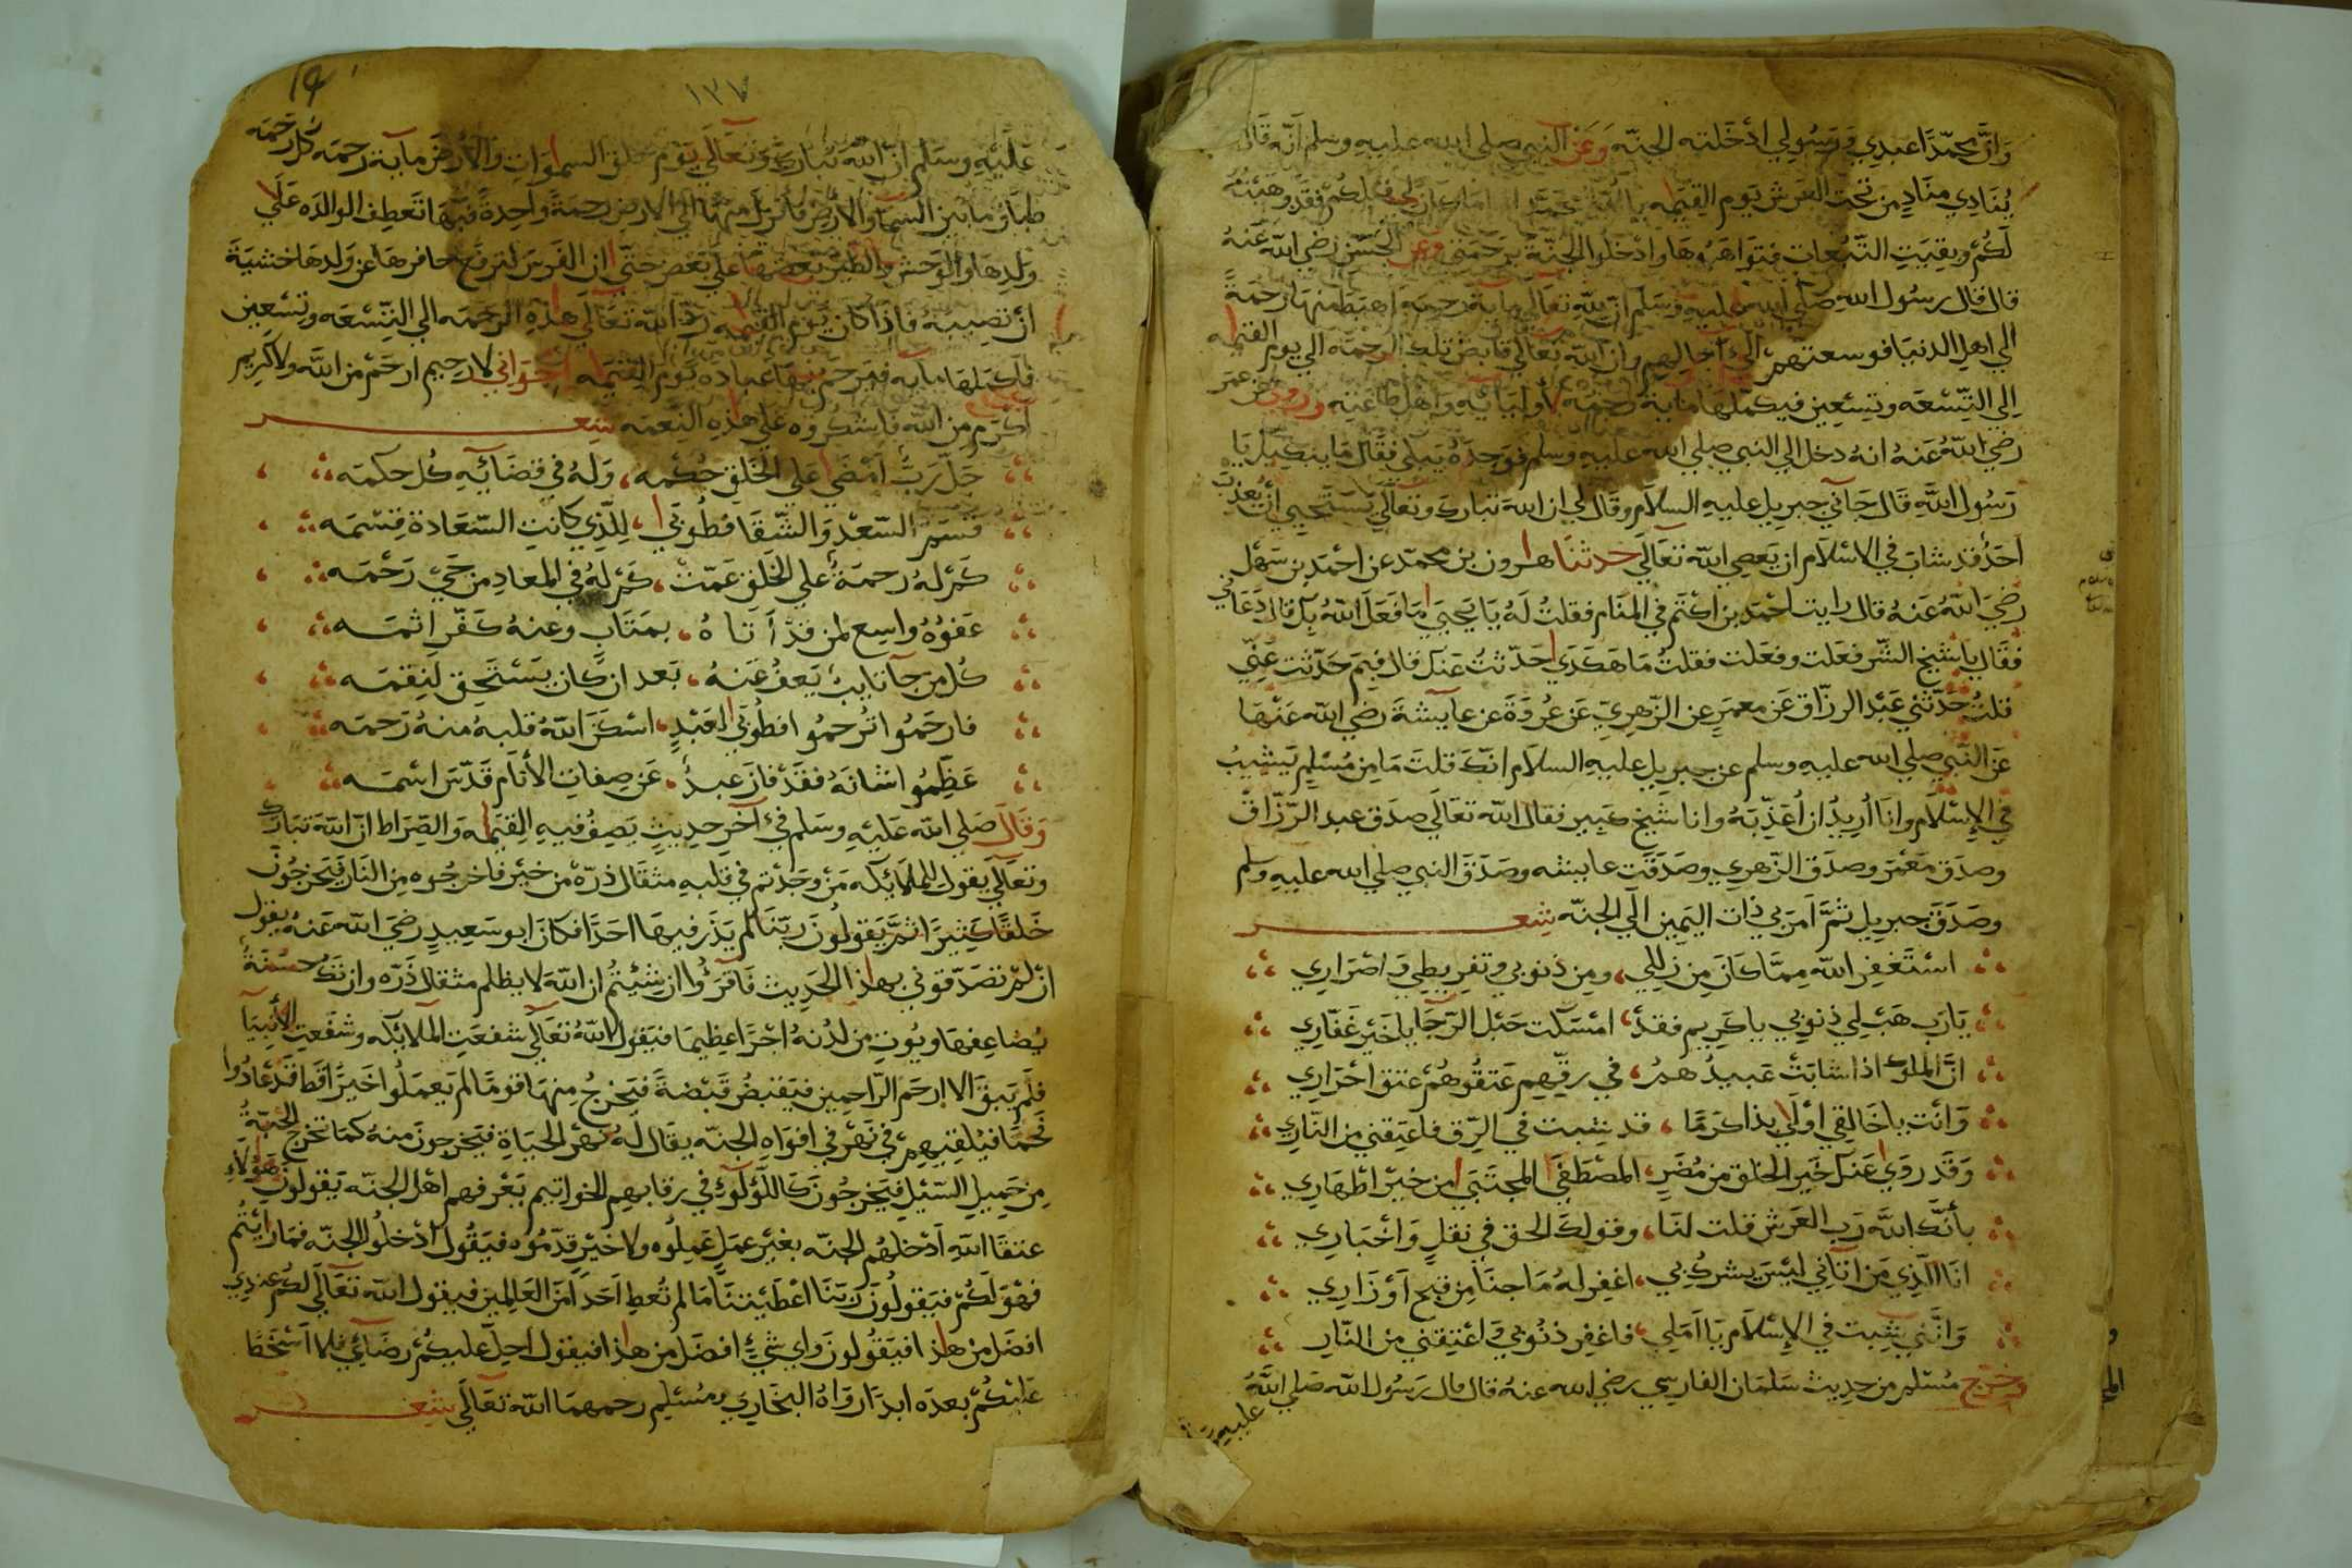 وَانَّ محمّدًا عبدي وَرَسُولي ادْخَلته الجنّه وَعَن النبي صلي الله عليه وسلم انّه قال
يُنَادي منَادٍ من تحت العَرش يَوم القيمه يا امّة محمّد امّا ما كان لي قبلكم فقد وهبته
لَكُم وبقيَتِ التّبعات فتوَاهَبُوهَا وادْخلُوا الجنّة برَحمَتي وعن الحسَن رَضي الله عَنهُ
قال قال رسُول الله صَلي الله عليه وَسَلم ان لله تعَالي مايةَ رحمَة اهبَطَ منهَا رَحمَةً
الي اهل الدنيا فوسعتهم الي آجالهم وان الله تعَالي قابض تلك الرحمَه الي يوم القيمه
الي التّسْعَه وتسْعين فيكملهَا ماية رَحمَة لأوليَائه وَاهل طاعَته وروي عن عمر
رَضي اللهُ عَنهُ انهُ دخل الي النبي صلي الله عليه وسلم فوَجدَهُ يَبكي فقَال مَا يبكيك يَا
رَسُول الله قَال جَآني جبريل عليه السلام وقَال لي ان الله تبَارك وتعَالي يَستَحيي أن يُعذب
احَدًا قد شابَ في الاسْلام ان يَعصِي الله تعَالي حدثنا هارون بن محمّد عن احْمَد بن سَهْل
رَضيَ اللهُ عَنهُ قال رايت احْمَد بن اكثم في المنَام فقلتُ لَهُ يَا يَحيَي مَا فَعَل اللهُ بك قال دَعَاني
فقَال يا شيخ السّر فعَلت وفعَلت فقلتُ مَا هَكَذي حَدّثتُ عَنك قال فبِمَ حَدّثت عَنّي
قلتُ حَدّثني عَبْد الرزّاق عَن معمَرٍ عن الزّهريّ عَن عُروَةَ عن عَايشَةَ رَضي الله عَنْهَا
عَن النّبي صلي الله عليه وسلم عن جبريل عليه السلام انّك قلتَ مَا من مُسْلمٍ يَشيبُ
في الإسْلام وانَا أريدُ ان أعَذّبَهُ وانا شيخ كَبير فقال الله تعَالي صدَق عبد الرّزّاق
وصدَق مَعْمَر وصدَق الزّهري وصَدَقَت عايشه وصَدَق النبي صلي الله عليه وسلم
وصَدَقَ جبريل ثمّ امَرَ بي ذات اليَمين الي الجنّه شعــر
استَغفِر الله ممّا كَانَ من زللي، ومن ذنوبي وتفريطي وَاصْرَاري
يَارَب هَب لي ذنوبي يا كَريم فقدْ، امْسَكت حَبْل الرّجَا يا خَيْر غَفّاري
انّ الملوك اذا شابَتْ عَبيدُهمُ، في رقّهم عَتقُوهُم عتق احْرَاري
وَانت يا خَالقي اولَي بذا كرَمًا، قد شبت في الرّق فاعتقني من النّاري
وَقَد رَوَي عَنك خَير الخلق من مُضَر، المصْطَفَي المجتَبَي من خيْر اطهَاري
بأنّك الله رَب العَرش قلت لنَا، وقولكَ الحق في نقلٍ وَاخبَاري
انَا الّذي مَن اتَاني ليْسَ يشركُ بي، اغفر لهُ مَا جنَا من قبح أوْزَاري
وَانّني شِبت في الإسْلام يَا امَلي، فاغفر ذنُوبي وَاعْتِقني من النّار
وخرّج مسْلم من حديث سَلمَان الفارسي رضي الله عنهُ قال قال رَسُول الله صَلي اللهُ
عليه
19
١٣٧
عَليْه وسَلم انّ اللهَ تبَارك وَتعَالي يَوم خلق السموَاتِ وَالأرْض ماية رَحمَه كل رَحمَه
طبَاق ما بَين السمَا والأرْض فأنزل منهَا الي الأرض رَحمَةً وَاحِدةً فبهَا تَعطِف الوَالدَه عَلَي
وَلدِهَا وَالوَحش وَالطّيْر بَعضهَا عَلي بَعض حَتّي ان الفَرسَ لترفَع حَافرهَا عن وَلدهَا خَشيَةَ
انْ تصيبهُ فاذا كان يَوم القيمَه رَدّ الله تعَالي هذه الرحمَه الي التّسعَه وتسْعين
فأكملهَا مايه فيَرحم بهَا عبَاده يَوم القيمَه اخوَاني لا رَحيم ارحَمُ من الله ولا كريم
اكرَم من الله فاشكُرُوه عَلي هَذه النّعمَه شعــر
جَلّ رَبّ امْضَي عَلي الخَلق حُكْمه، وَلهُ في قضَائه كُل حكمَه
قسَم السّعْد وَالشّقَا فطُوبَي، للّذي كانتِ السّعَادة قسْمَه
كَمْ لهُ رحمَةً علي الخلق عَمّتْ، كَمْ لهُ في المعَاد من حَيْ رَحْمَه
عَفوُهُ واسِع لمن قدْ أتاهُ، بمَتَابٍ وعنهُ كَفّر اثمَه
كُل من جَآ تَايبٌ يَعفُ عَنهُ، بَعد ان كان يَسْتَحِق لنقمَه
فارحَمُوا تُرحمُوا فطُوبَي لعَبْدٍ، اسْكَنَ اللهُ قلبهُ منهُ رَحمَه
عَظّمُوا شَانَهُ فقدْ فازَ عبدٌ، عَن صِفاتِ الأنَام قَدّسَ اسْمَه
وَقَال صَلي الله عَليْه وسَلم في آخر حديثٍ يَصفُ فيه القيمَه وَالصّرَاط انّ الله تبَارك
وتعَالي يَقول للمَلائكه مَن وجَدْتم في قلبه مثقَال ذرّه من خَيْر فاخرجُوه من النَار فَيَخرجُونَ
خَلقًا كثِيرًا ثمّ يَقولونَ رَبّنَا لَم نَذَر فيهَا احَدًا فكان ابو سَعيدٍ رضيَ الله عَنهُ يقول
ان لمْ تصَدّقوني بهَذا الحَديث فَاقرَؤا ان شئتُم ان الله لا يظلم مثقال ذَرّه وان تَكُ حَسَنةً
يُضاعِفهَا ويُوت من لدُنهُ اجْرًا عظيمًا فيَقول اللهُ تعَالي شفعَتِ الملائكه وشفَعَتِ الأنبيَآ
فلَم يَبقَ الا ارحَم الرّاحمين فيَقبضُ قَبْضَةً فيَخرجُ منهَا قومًا لم يَعمَلُوا خَيرًا قَط قَد عَادُوا
حُمَمًا فيُلقيهمْ في نَهْر في افوَاه الجنّه يقَال لهُ نَهْر الحَيَاة فيَخرجونَ منهُ كمَا تخرج الحبّةُ
من حَميلِ السّيْلِ فيَخرجُونَ كاللّؤلؤ في رقابهم الخواتيم يَعْرفهم اهْل الجنّه يَقولون هَؤلاءِ
عتقَا الله ادْخلهُم الجنّه بغَيْر عمَلٍ عَملُوه ولا خَيْر قدّمُوه فيَقُول ادْخلُوا الجنّه فمَا رَايْتُم
فَهْوَ لَكُمْ فيَقولُونَ رَبّنَا اعْطَيْتنَا مَا لم تُعطِ احَدًا منَ العَالمين فيقول الله تعَالي لكُم عندي
افضَل من هذا فيَقُولونَ وَاي شيْء افضَل من هذا فيقول احِلّ عليكُمْ رضَائي فلا اسْخَطُ
عَليْكُمْ بعدَه ابدًا رَوَاهُ البخَاري ومُسْلِم رحمهمَا الله تعَالي شعــر